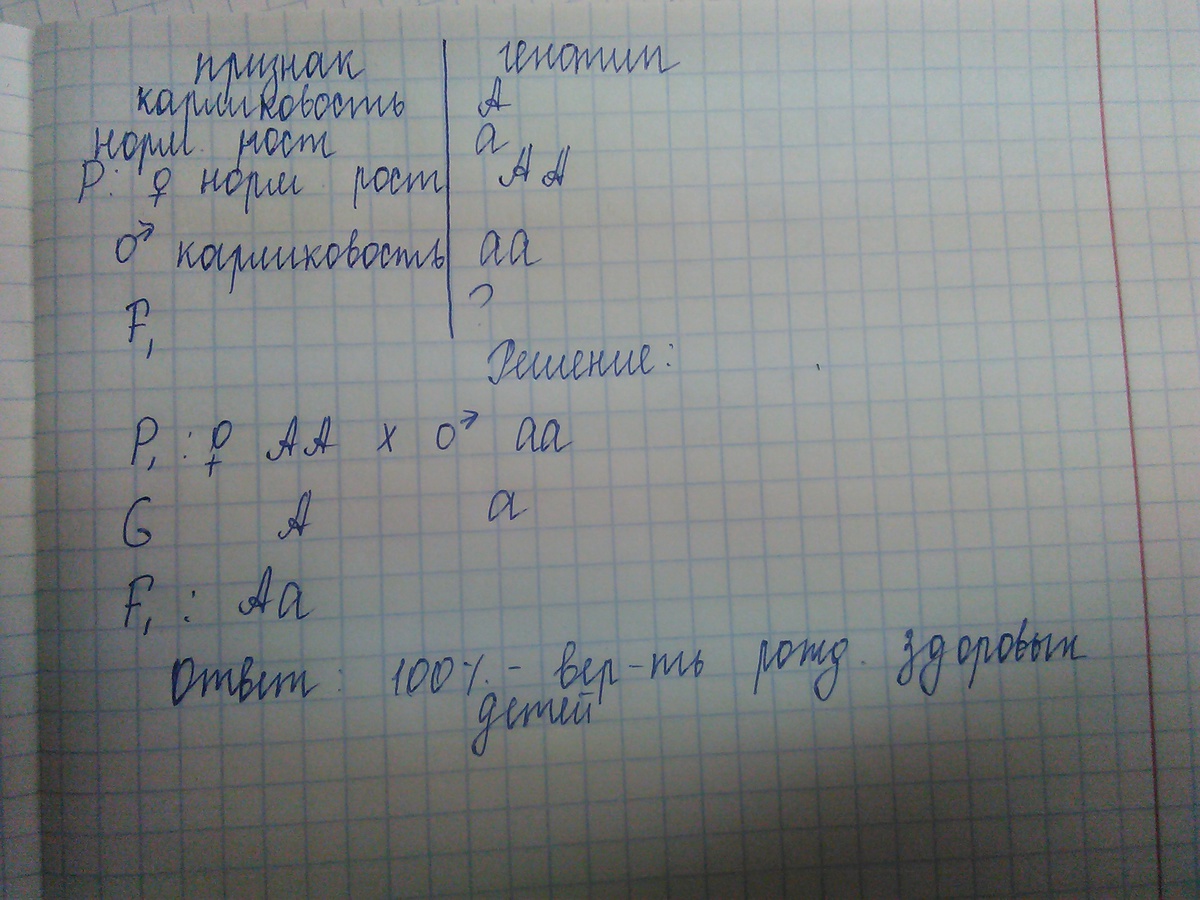 признак генотип
карликовость A
норм рост a
P: ♀ норм рост AA
♂ карликовость aa
F₁ ?
Решение:
P₁ : ♀ AA x ♂ aa
G A a
F₁ : Aa
Ответ: 100% - вер-ть рожд. здоровых
детей